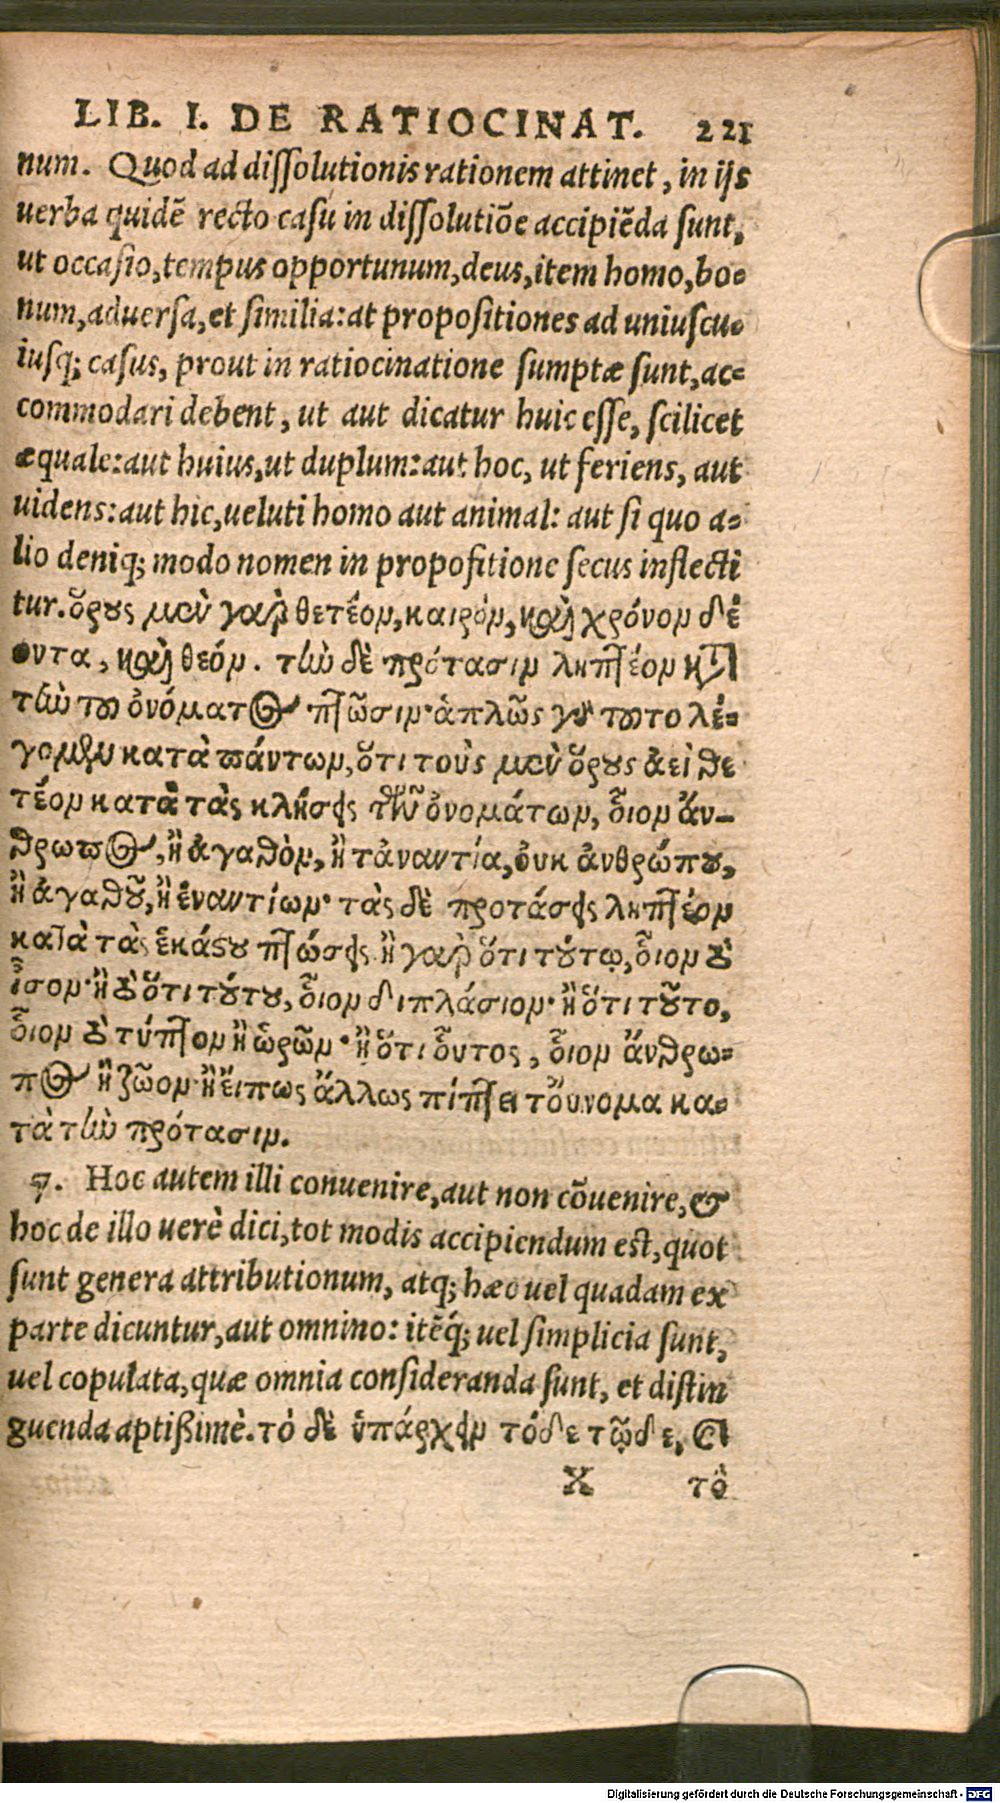 LIB. I. DE RATIOCINAT. 221
num. Quod ad dissolutionis rationem attinet, in ijs
uerba quidē recto casu in dissolutiōe accipiēda sunt,
ut occasio, tempus opportunum, deus, item homo, bo-
num, aduersa, et similia: at propositiones ad uniuscu-
iusq; casus, prout in ratiocinatione sumptæ sunt, ac-
commodari debent, ut aut dicatur huic esse, scilicet
æquale: aut huius, ut duplum: aut hoc, ut feriens, aut
uidens: aut hic, ueluti homo aut animal: aut si quo a-
lio deniq; modo nomen in propositione secus inflecti
tur. ὅρους μὲν γὰρ θετέον, καιρόν, καὶ χρόνον δέ
οντα, καὶ θεόν. τὴν δὲ πρότασιν ληπτέον κτ̃
τὴν τοῦ ὀνόματος πτῶσιν· ἁπλῶς γὰρ τοῦτο λέ-
γομεν κατὰ πάντων, ὅτι τοὺς μὲν ὅρους ἀεὶ θε
τέον κατὰ τὰς κλήσεις τῶν ὀνομάτων, οἷον ἄν-
θρωπος, ἢ ἀγαθὸν, ἢ τἀναντία, οὐκ ἀνθρώπου,
ἢ ἀγαθοῦ, ἢ ἐναντίων· τὰς δὲ προτάσεις ληπτέον
κατὰ τὰς ἑκάστου πτώσεις. ἢ γὰρ ὅτι τούτῳ, οἷον τὸ
ἴσον· ἢ τὸ ὅτι τούτου, οἷον διπλάσιον· ἢ ὅτι τοῦτο,
οἷον τὸ τύπτον ἢ ὁρῶν· ἢ ὅτι οὗτος, οἷον ἄνθρω-
πος ἢ ζῶον· ἢ εἴπως ἄλλως πίπτει τοὔνομα κα-
τὰ τὴν πρότασιν.
7. Hoc autem illi conuenire, aut non cōuenire, &
hoc de illo uerè dici, tot modis accipiendum est, quot
sunt genera attributionum, atq; hæc uel quadam ex
parte dicuntur, aut omnino: itēq́; uel simplicia sunt,
uel copulata, quæ omnia consideranda sunt, et distin
guenda aptißimè. τὸ δὲ ὑπάρχειν τόδε τῷδε, καὶ
X τὸ
Digitalisierung gefördert durch die Deutsche Forschungsgemeinschaft - DFG